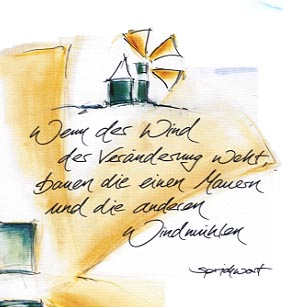 Wenn der Wind
der Veränderung weht,
bauen die einen Mauern
und die anderen
Windmühlen
Sprichwort